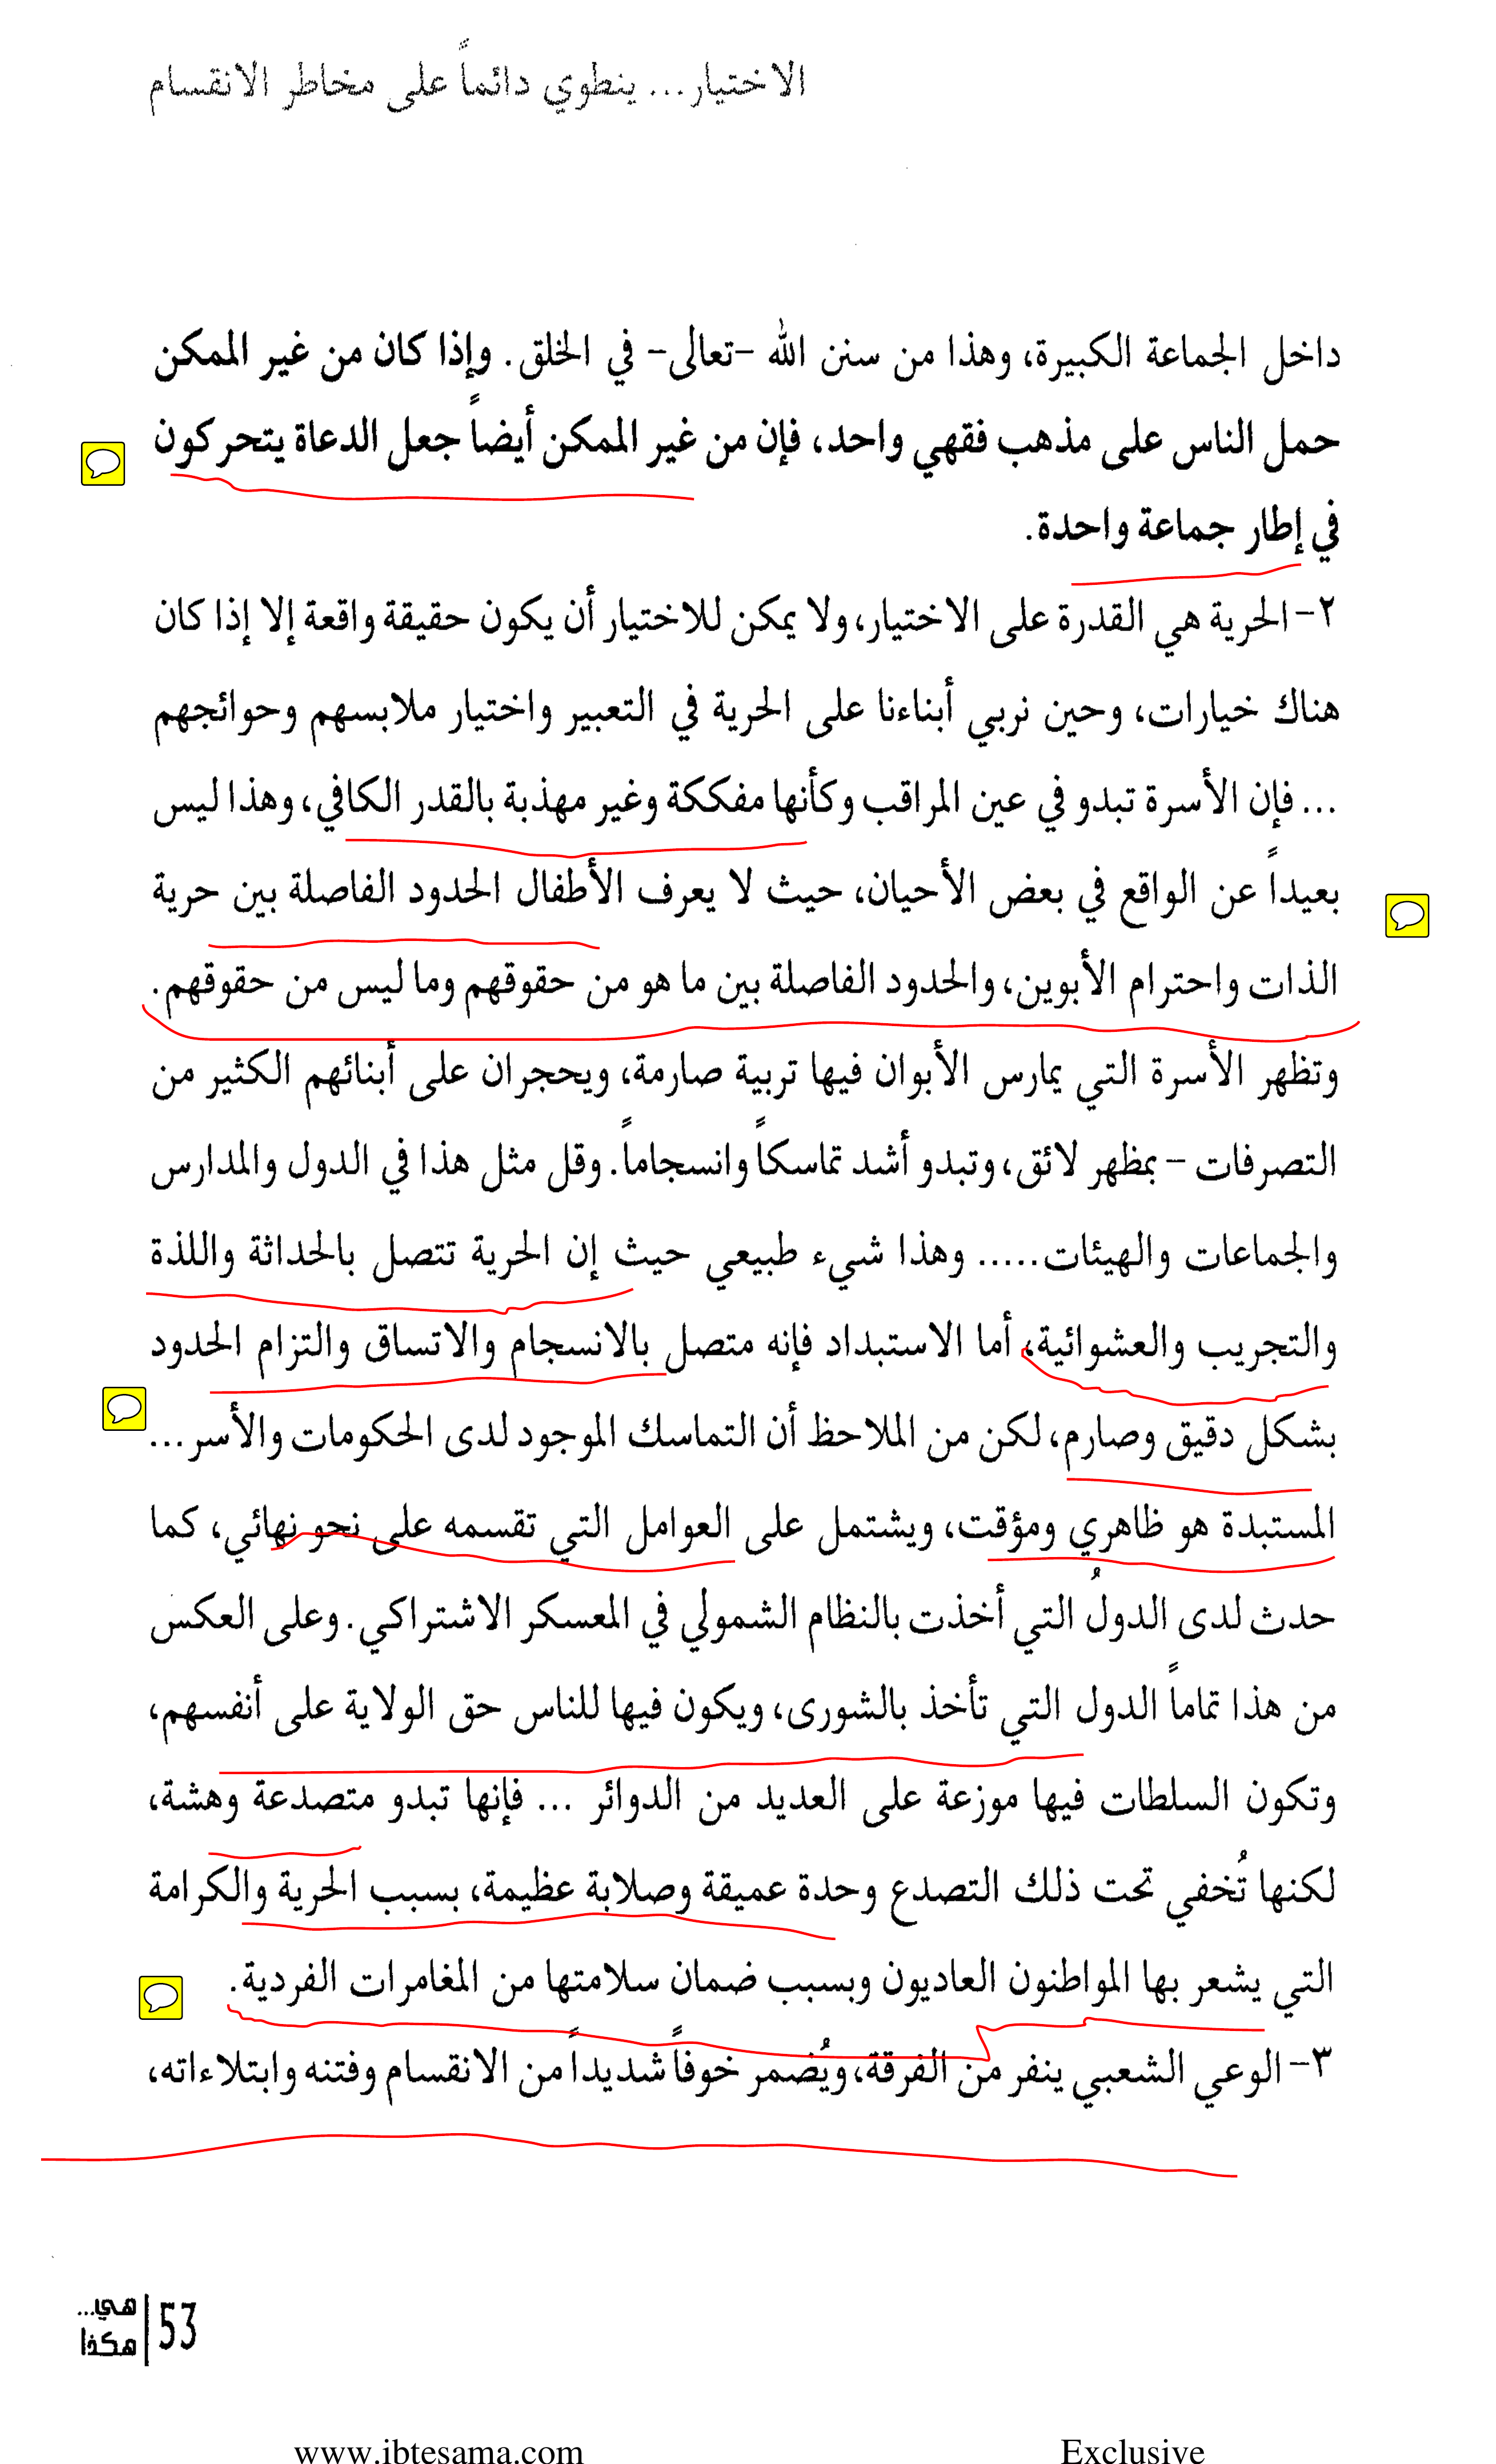 الاختيار... ينطوي دائماً على مخاطر الانقسام
داخل الجماعة الكبيرة، وهذا من سنن الله -تعالى- في الخلق. وإذا كان من غير الممكن
حمل الناس على مذهب فقهي واحد، فإن من غير الممكن أيضاً جعل الدعاة يتحركون
في إطار جماعة واحدة.
٢- الحرية هي القدرة على الاختيار، ولا يمكن للاختيار أن يكون حقيقة واقعة إلا إذا كان
هناك خيارات، وحين نربي أبناءنا على الحرية في التعبير واختيار ملابسهم وحوائجهم
... فإن الأسرة تبدو في عين المراقب وكأنها مفككة وغير مهذبة بالقدر الكافي، وهذا ليس
بعيداً عن الواقع في بعض الأحيان، حيث لا يعرف الأطفال الحدود الفاصلة بين حرية
الذات واحترام الأبوين، والحدود الفاصلة بين ما هو من حقوقهم وما ليس من حقوقهم.
وتظهر الأسرة التي يمارس الأبوان فيها تربية صارمة، ويحجران على أبنائهم الكثير من
التصرفات - بمظهر لائق، وتبدو أشد تماسكاً وانسجاماً. وقل مثل هذا في الدول والمدارس
والجماعات والهيئات..... وهذا شيء طبيعي حيث إن الحرية تتصل بالحداثة واللذة
والتجريب والعشوائية، أما الاستبداد فإنه متصل بالانسجام والاتساق والتزام الحدود
بشكل دقيق وصارم، لكن من الملاحظ أن التماسك الموجود لدى الحكومات والأسر...
المستبدة هو ظاهري ومؤقت، ويشتمل على العوامل التي تقسمه على نحو نهائي، كما
حدث لدى الدولُ التي أخذت بالنظام الشمولي في المعسكر الاشتراكي. وعلى العكس
من هذا تماماً الدول التي تأخذ بالشورى، ويكون فيها للناس حق الولاية على أنفسهم،
وتكون السلطات فيها موزعة على العديد من الدوائر ... فإنها تبدو متصدعة وهشة،
لكنها تُخفي تحت ذلك التصدع وحدة عميقة وصلابة عظيمة، بسبب الحرية والكرامة
التي يشعر بها المواطنون العاديون وبسبب ضمان سلامتها من المغامرات الفردية.
٣- الوعي الشعبي ينفر من الفرقة، ويُضمر خوفاً شديداً من الانقسام وفتنه وابتلاءاته،
53 هي...
هكذا
www.ibtesama.com Exclusive